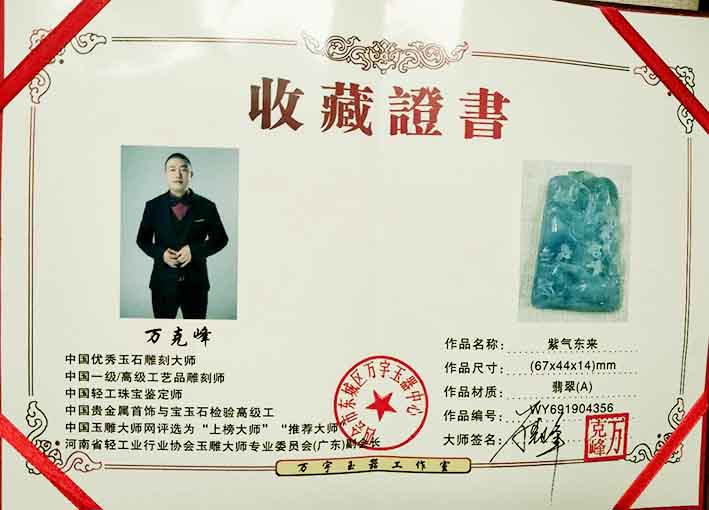 收藏證書
万克峰
中国优秀玉石雕刻大师
中国一级/高级工艺品雕刻师
中国轻工珠宝鉴定师
中国贵金属首饰与宝玉石检验高级工
中国玉雕大师网评选为“上榜大师”“推荐大师”
河南省轻工业行业协会玉雕大师专业委员会(广东)副会长
作品名称: 紫气东来
作品尺寸: (67x44x14)mm
作品材质: 翡翠(A)
作品编号: WY691904356
大师签名:
万克峰
市东城区万字玉器中心
万字玉器工作室